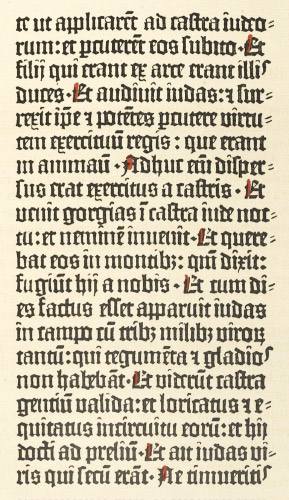 te ut applicarēt ad castra iudeo-
rum: et ꝑcuterēt eos subito. Et
filij qui erant ex arce erant illiˢ
duces. Et audiuit iudas: ⁊ sur-
rexit ip̄e ⁊ potētes ꝑcutere virtu-
tem exercituū regis: que erant
in ammaū. Adhuc eī disper-
sus erat exercitus a castris. Et
uenit gorgias ī castra iude noc-
tu: et neminē inuenit. Et quere-
bat eos in montibꝫ: qm̄ dixit:
fugiūt hij a nobis. Et cum di-
es factus esset apparuit iudas
in campo cū tribꝫ milibꝫ virorꝝ
tantū: qui tegumēta ⁊ gladioˢ
non habebāt. Et viderūt castra
gentiū valida: et loricatus ⁊ e-
quitatus incircuitu eorū: et hij
docti ad preliū. Et ait iudas vi-
ris qui secū erāt. Ne timueritiˢ